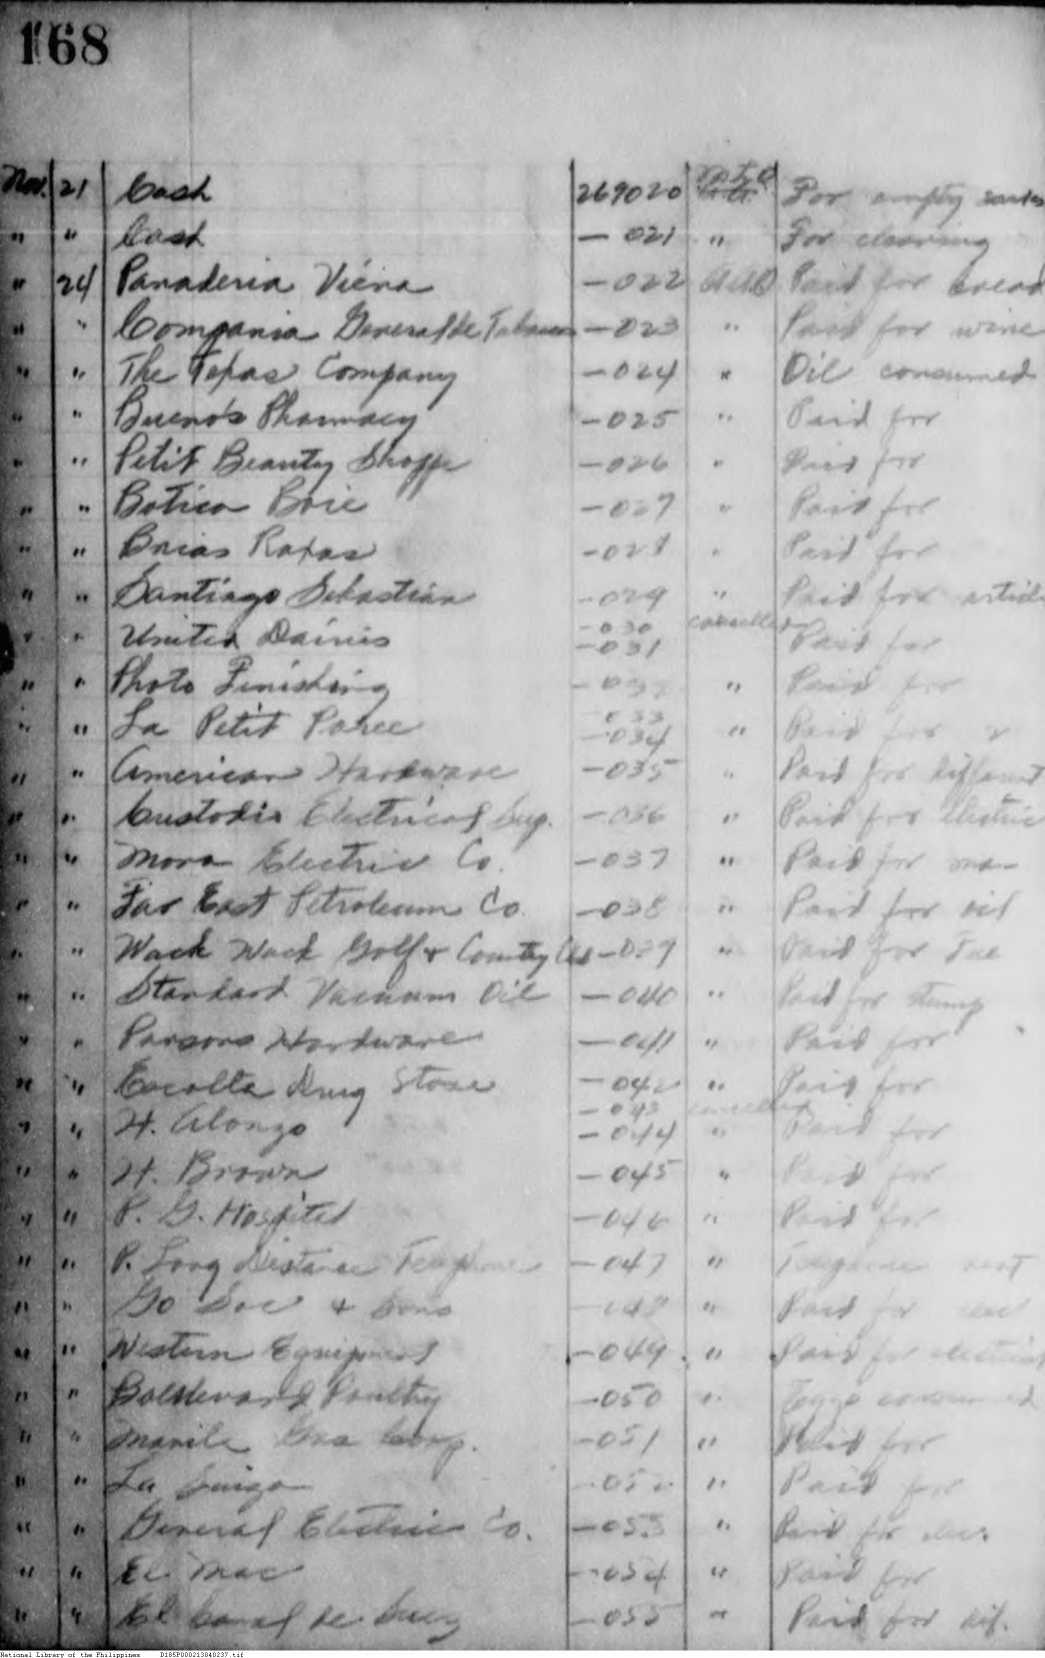 168
Nov. 21 Cash 269020 For empty
" " Cash — 021 " For cleaning
" 24 Panaderia Viena — 022 Paid for bread
" " Compania General de Tabacos — 023 " Paid for wine
" " The Texas Company — 024 " Oil consumed
" " Bueno's Pharmacy — 025 " Paid for
" " Petit Beauty Shoppe — 026 " Paid for
" " Botica Boie — 027 " Paid for
" " Brias Roxas — 028 " Paid for
" " Santiago Sebastian — 029 " Paid for article
— 030 cancelled
" " United Dairies — 031 Paid for
" " Photo Finishing — 032 " Paid for
— 033
" " La Petit Paree — 034 " Paid for
" " American Hardware — 035 " Paid for different
" " Custodio Electrical Sup. — 036 " Paid for Electric
" " Mora Electric Co. — 037 " Paid for ma-
" " Far East Petroleum Co. — 038 " Paid for oil
" " Wack Wack Golf & Country Club — 039 " Paid for
" " Standard Vacuum Oil — 040 " Paid for
" " Parsons Hardware — 041 " Paid for
" " Escolta Drug Store — 042 " Paid for
— 043 cancelled
" " H. Alonzo — 044 " Paid for
" " H. Brown — 045 " Paid for
" " P. G. Hospital — 046 " Paid for
" " P. Long Distance Telephone — 047 " Telephone rent
" " Go Soc & Sons — 048 " Paid for
" " Western Equipment — 049 " Paid for electrical
" " Boulevard Poultry — 050 " Eggs consumed
" " Manila Gas Corp. — 051 " Paid for
" " La Suiza — 052 " Paid for
" " General Electric Co. — 053 " Paid for elec.
" " El Mac — 054 " Paid for
" " El Canal de Suez — 055 " Paid for dif.
National Library of the Philippines D185P000213840237.tif